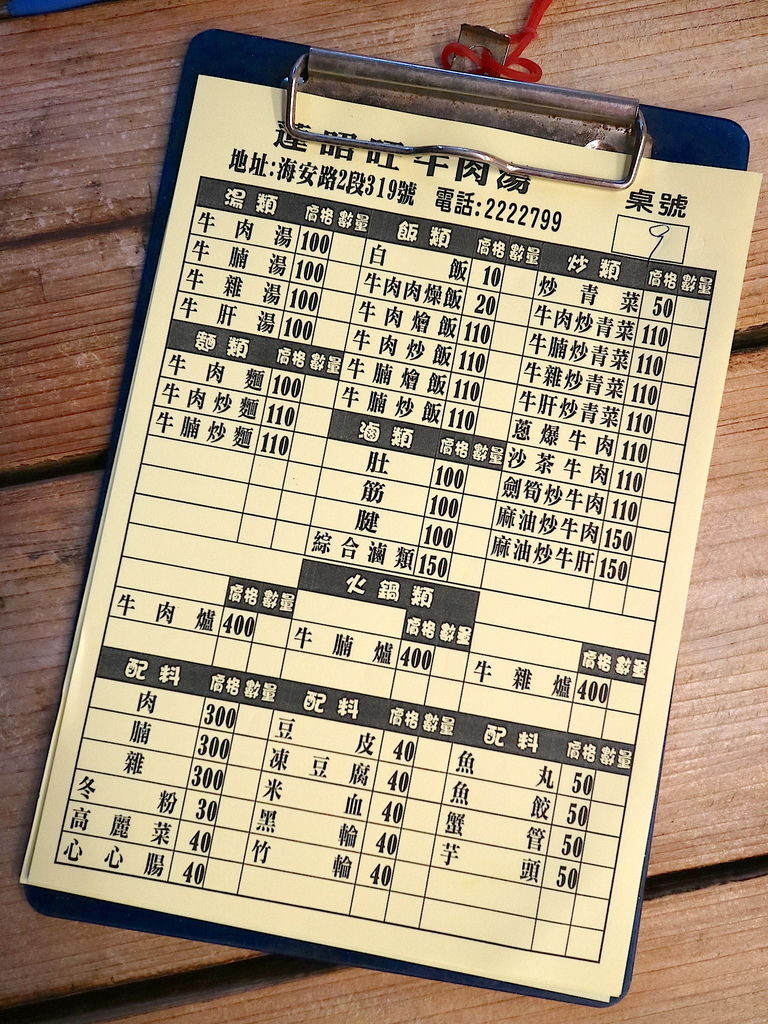 蓮昭旺牛肉湯
地址:海安路2段319號 電話:2222799
桌號
9
湯類 價格 數量
牛肉湯 100
牛腩湯 100
牛雜湯 100
牛肝湯 100
麵類 價格 數量
牛肉麵 100
牛肉炒麵 110
牛腩炒麵 110
飯類 價格 數量
白飯 10
牛肉肉燥飯 20
牛肉燴飯 110
牛肉炒飯 110
牛腩燴飯 110
牛腩炒飯 110
滷類 價格 數量
肚 100
筋 100
腱 100
綜合滷類 150
炒類 價格 數量
炒青菜 50
牛肉炒青菜 110
牛腩炒青菜 110
牛雜炒青菜 110
牛肝炒青菜 110
蔥爆牛肉 110
沙茶牛肉 110
劍筍炒牛肉 110
麻油炒牛肉 150
麻油炒牛肝 150
火鍋類
價格 數量
牛肉爐 400
價格 數量
牛腩爐 400
價格 數量
牛雜爐 400
配料 價格 數量
肉 300
腩 300
雜 300
冬粉 30
高麗菜 40
心心腸 40
配料 價格 數量
豆皮 40
凍豆腐 40
米血 40
黑輪 40
竹輪 40
配料 價格 數量
魚丸 50
魚餃 50
蟹管 50
芋頭 50